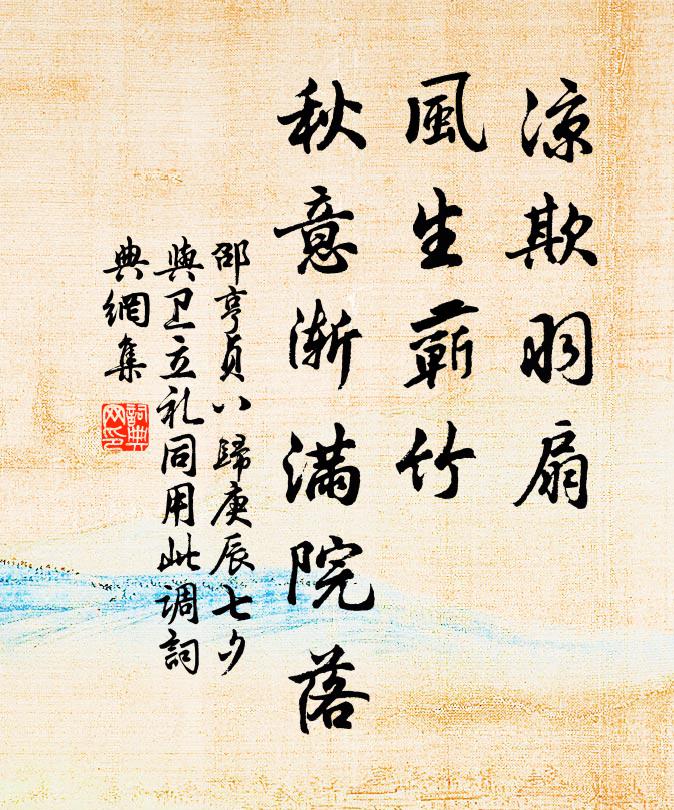 凉欺羽扇
風生蘄竹
秋意渐满院落
邵亨貞八歸庚辰七夕
與卫立礼同用此调詞
典網集
詞典网印